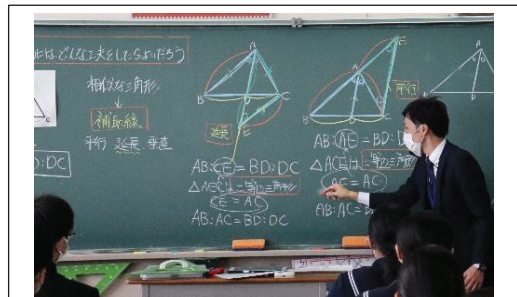 にはどんな工夫をしたらよいだろう
相似な三角形
↓
補助線
平行 延長 垂直
DC
A
B
D
C
E
延長
AB:CE=BD:DC
△ACEは二等辺三角形
CE=AC
AB:AC=BD:DC
E
A
B
D
C
平行
AB:AE=BD:DC
△ACEは二等辺三角形
AE=AC
AB:AC=B
A
B
D